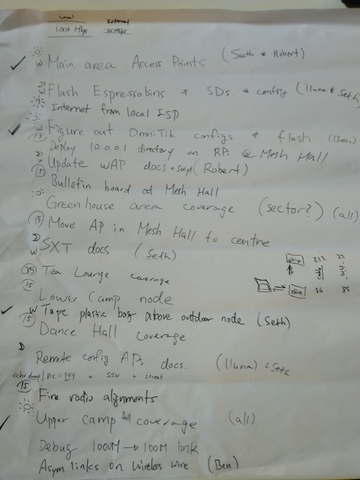 Local Internet
100 Mbps
Main area Access Points (Seth & Robert)
Flash Espressobins & SDs & config (lluna & Seth)
Internet from local ISP
Figure out OmniTik configs & flash (Ben)
Deploy 10.0.0.1 directory on RPi @ Mesh Hall
Update wAP docs (Robert)
Bulletin board at Mesh Hall
Greenhouse area coverage (sector?) (all)
15 Move AP in Mesh Hall to centre
D
W SXT docs (Seth)
15 Tea Lounge coverage
15 Lower Camp node
W Tape plastic bag above outdoor node (Seth)
15 Dance Hall coverage
D Remote config APs docs. (lluna) + Seth
15 Fine radio alignments
Upper camp coverage (all)
Debug 1000M → 100M link
Asym links on wireless wire (Ben)